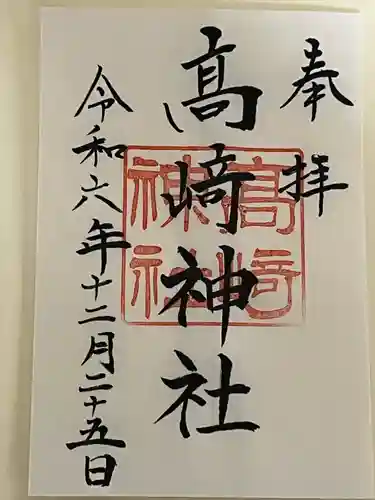 奉拝
髙﨑神社
令和六年十二月二十五日
髙﨑
神社